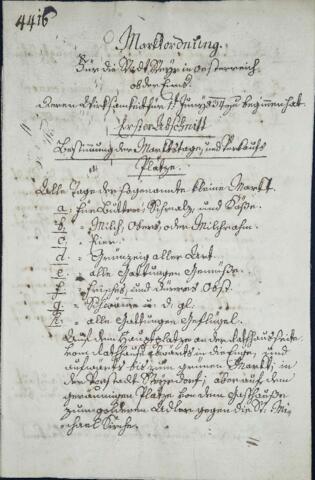 4416
Marktordnung.
Für die Stadt Steyr in Oesterreich
ob der Enns.
deren Wirksamkeit für 1834 zu beginnen hat.
Erster Abschnitt
Bestimmung der Markttage, und Verkaufs
Plätze.
Alle Tage der sogenannte kleine Markt.
a. Für Butter, Schmalz, und Käße.
b. " Milch, Obers, oder Milchrahm.
c. " Eier.
d. " Grünzeug aller Art
e. " alle Gattungen Gemüße.
f. " frisches und dürres Obst.
g. " Schwämme u. d. gl.
h. " alle Gattungen Geflügel.
Auf dem Hauptplatze an der Rathhausseite
vom Rathhause abwärts in die Enge, und
aufwärts bis zum grünen Markt; in
der Vorstadt Steyrdorf; aber auf dem
geräumigen Platze von dem Gasthause
zum goldenen Adler gegen die St. Mi-
chaels Kirche.